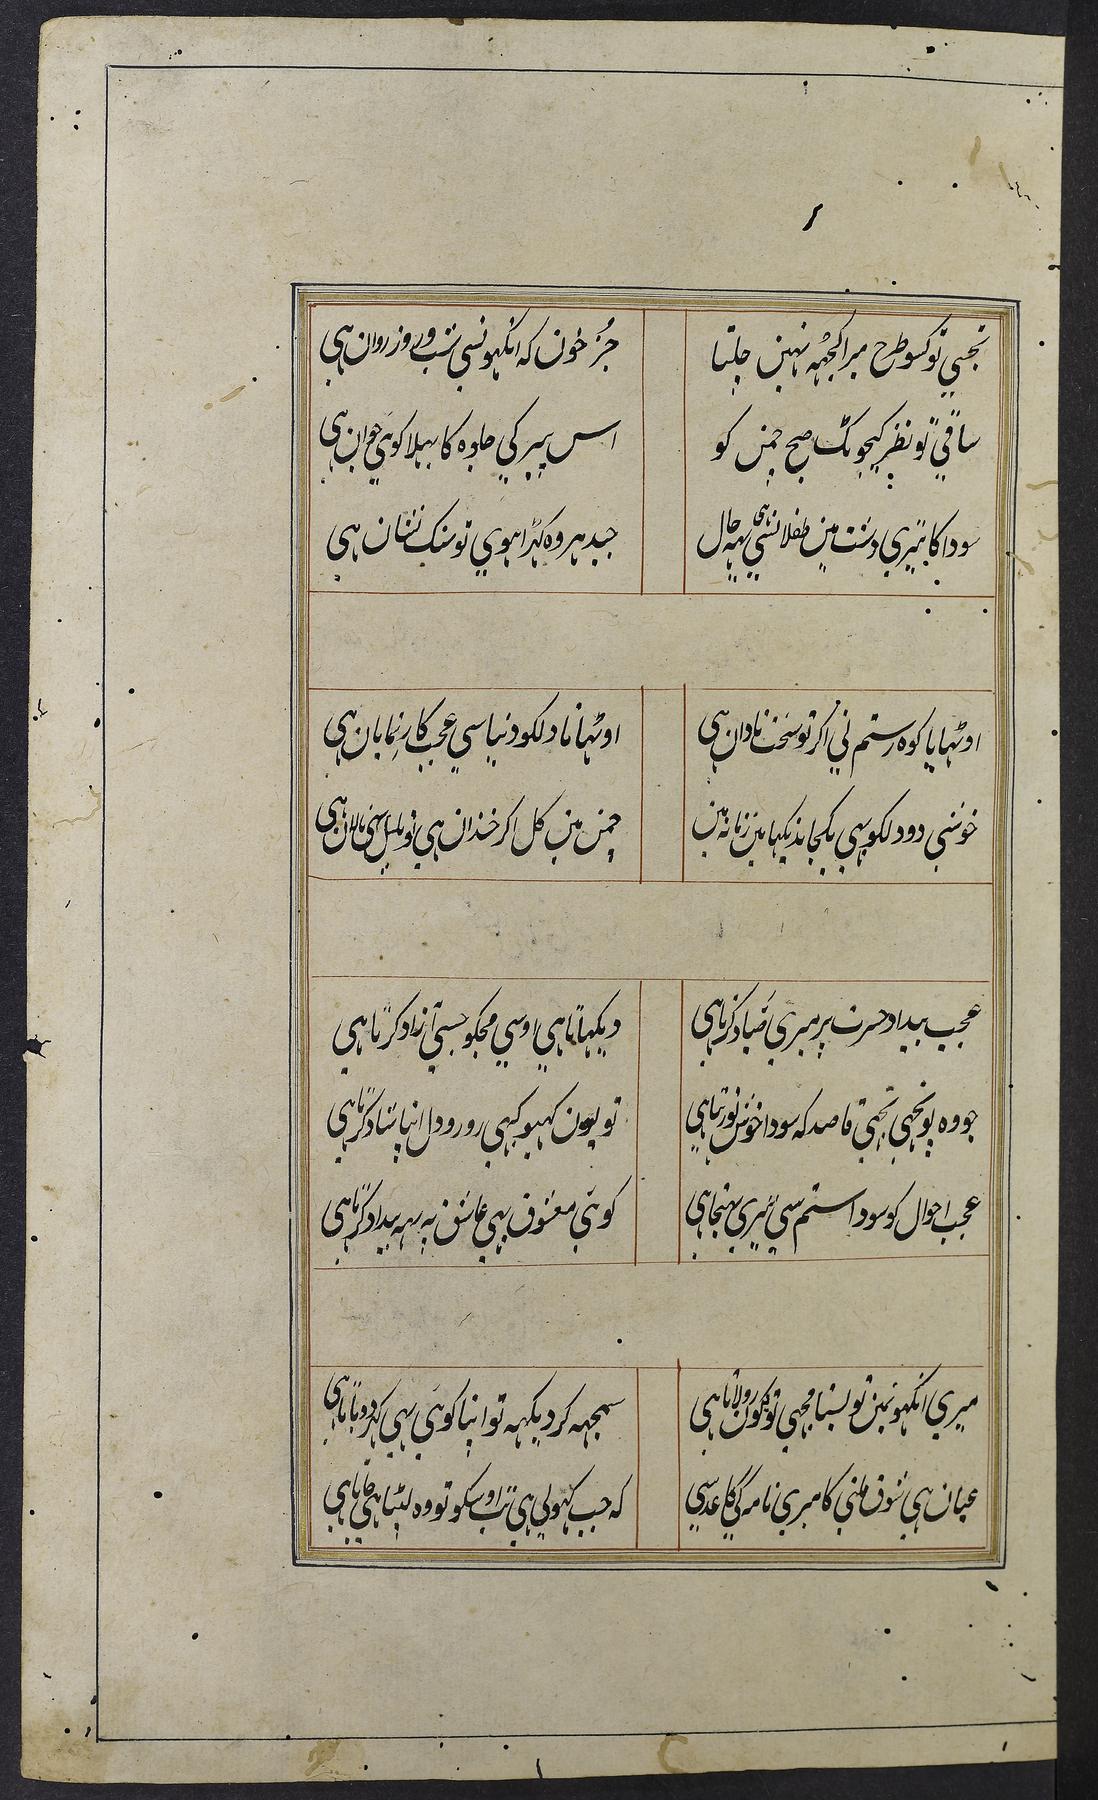 تجسی تو کسو طرح میرا کجہہ نہین چلتا
جز خون کہ انکہونسی شب و روز روان ہی
ساقی تو نظر کیجو ٹک صبح چمن کو
اس پیر کی جلوہ کا پہلا کوئی جوان ہی
سودا کا تیری دشت مین طفلانسی ہی یہہ حال
جیدہر وہ کہڑا ہوی تو سنک نشان ہی
اوٹہایا کوہ رستم نی اکر تو سخت نادان ہی
اوٹہانا دلکو دنیا سی عجب کار نمایان ہی
خوشی دو دلکو بہی یکجا ندیکہا مین زمانہ مین
چمن مین کل اکر خندان ہی تو بلبل نالان ہی
عجب بیداد حسرت پر میری صیاد کرتا ہی
دیکہاتا ہی اوسی مجکو جسی آزاد کرتا ہی
جو وہ پونچہی تجہی قاصد کہ سودا خوش تو رہتا ہی
تو یون کہیو کبہی رو رو دل اپنا شاد کرتا ہی
عجب احوال کو سودا ستم سی تیری پہنچا ہی
کوئی معشوق بہی عاشق پہ یہہ بیداد کرتا ہی
میری انکہونمین تو بستا مجہی تو کیون رولاتا ہی
سمجہہ کر دیکہہ تو اپنا کوئی بہی کہر ڈوباتا ہی
عیان ہی شوق ملنی کا میری نامہ کی کاغذ سی
کہ جب کہولی ہی تب اوسکو تو وہ لپٹا ہی جاتا ہی